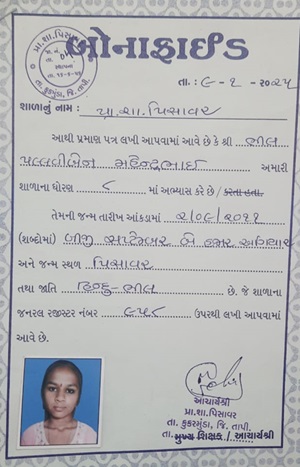 બોનાફાઈડ
તા.: ૯-૧-૨૦૨૫
શાળાનું નામ : પ્રા.શા.પિસાવર
આથી પ્રમાણ પત્ર લખી આપવામાં આવે છે કે શ્રી ભીલ
પલ્લવીબેન મહેન્દ્રભાઈ અમારી
શાળાના ધોરણ ૮ માં અભ્યાસ કરે છે / કરતા હતા.
તેમની જન્મ તારીખ આંકડામાં ૨/૦૯/૨૦૧૧
(શબ્દોમાં) બીજી સપ્ટેમ્બર બે હજાર અગિયાર
અને જન્મ સ્થળ પિસાવર
તથા જાતિ હિન્દુ-ભીલ છે. જે શાળાના
જનરલ રજીસ્ટર નંબર ૯૫૮ ઉપરથી લખી આપવામાં
આવે છે.
આચાર્યશ્રી
પ્રા.શા.પિસાવર
તા. કુકરમુંડા, જિ. તાપી.
મુખ્ય શિક્ષક / આચાર્યશ્રી